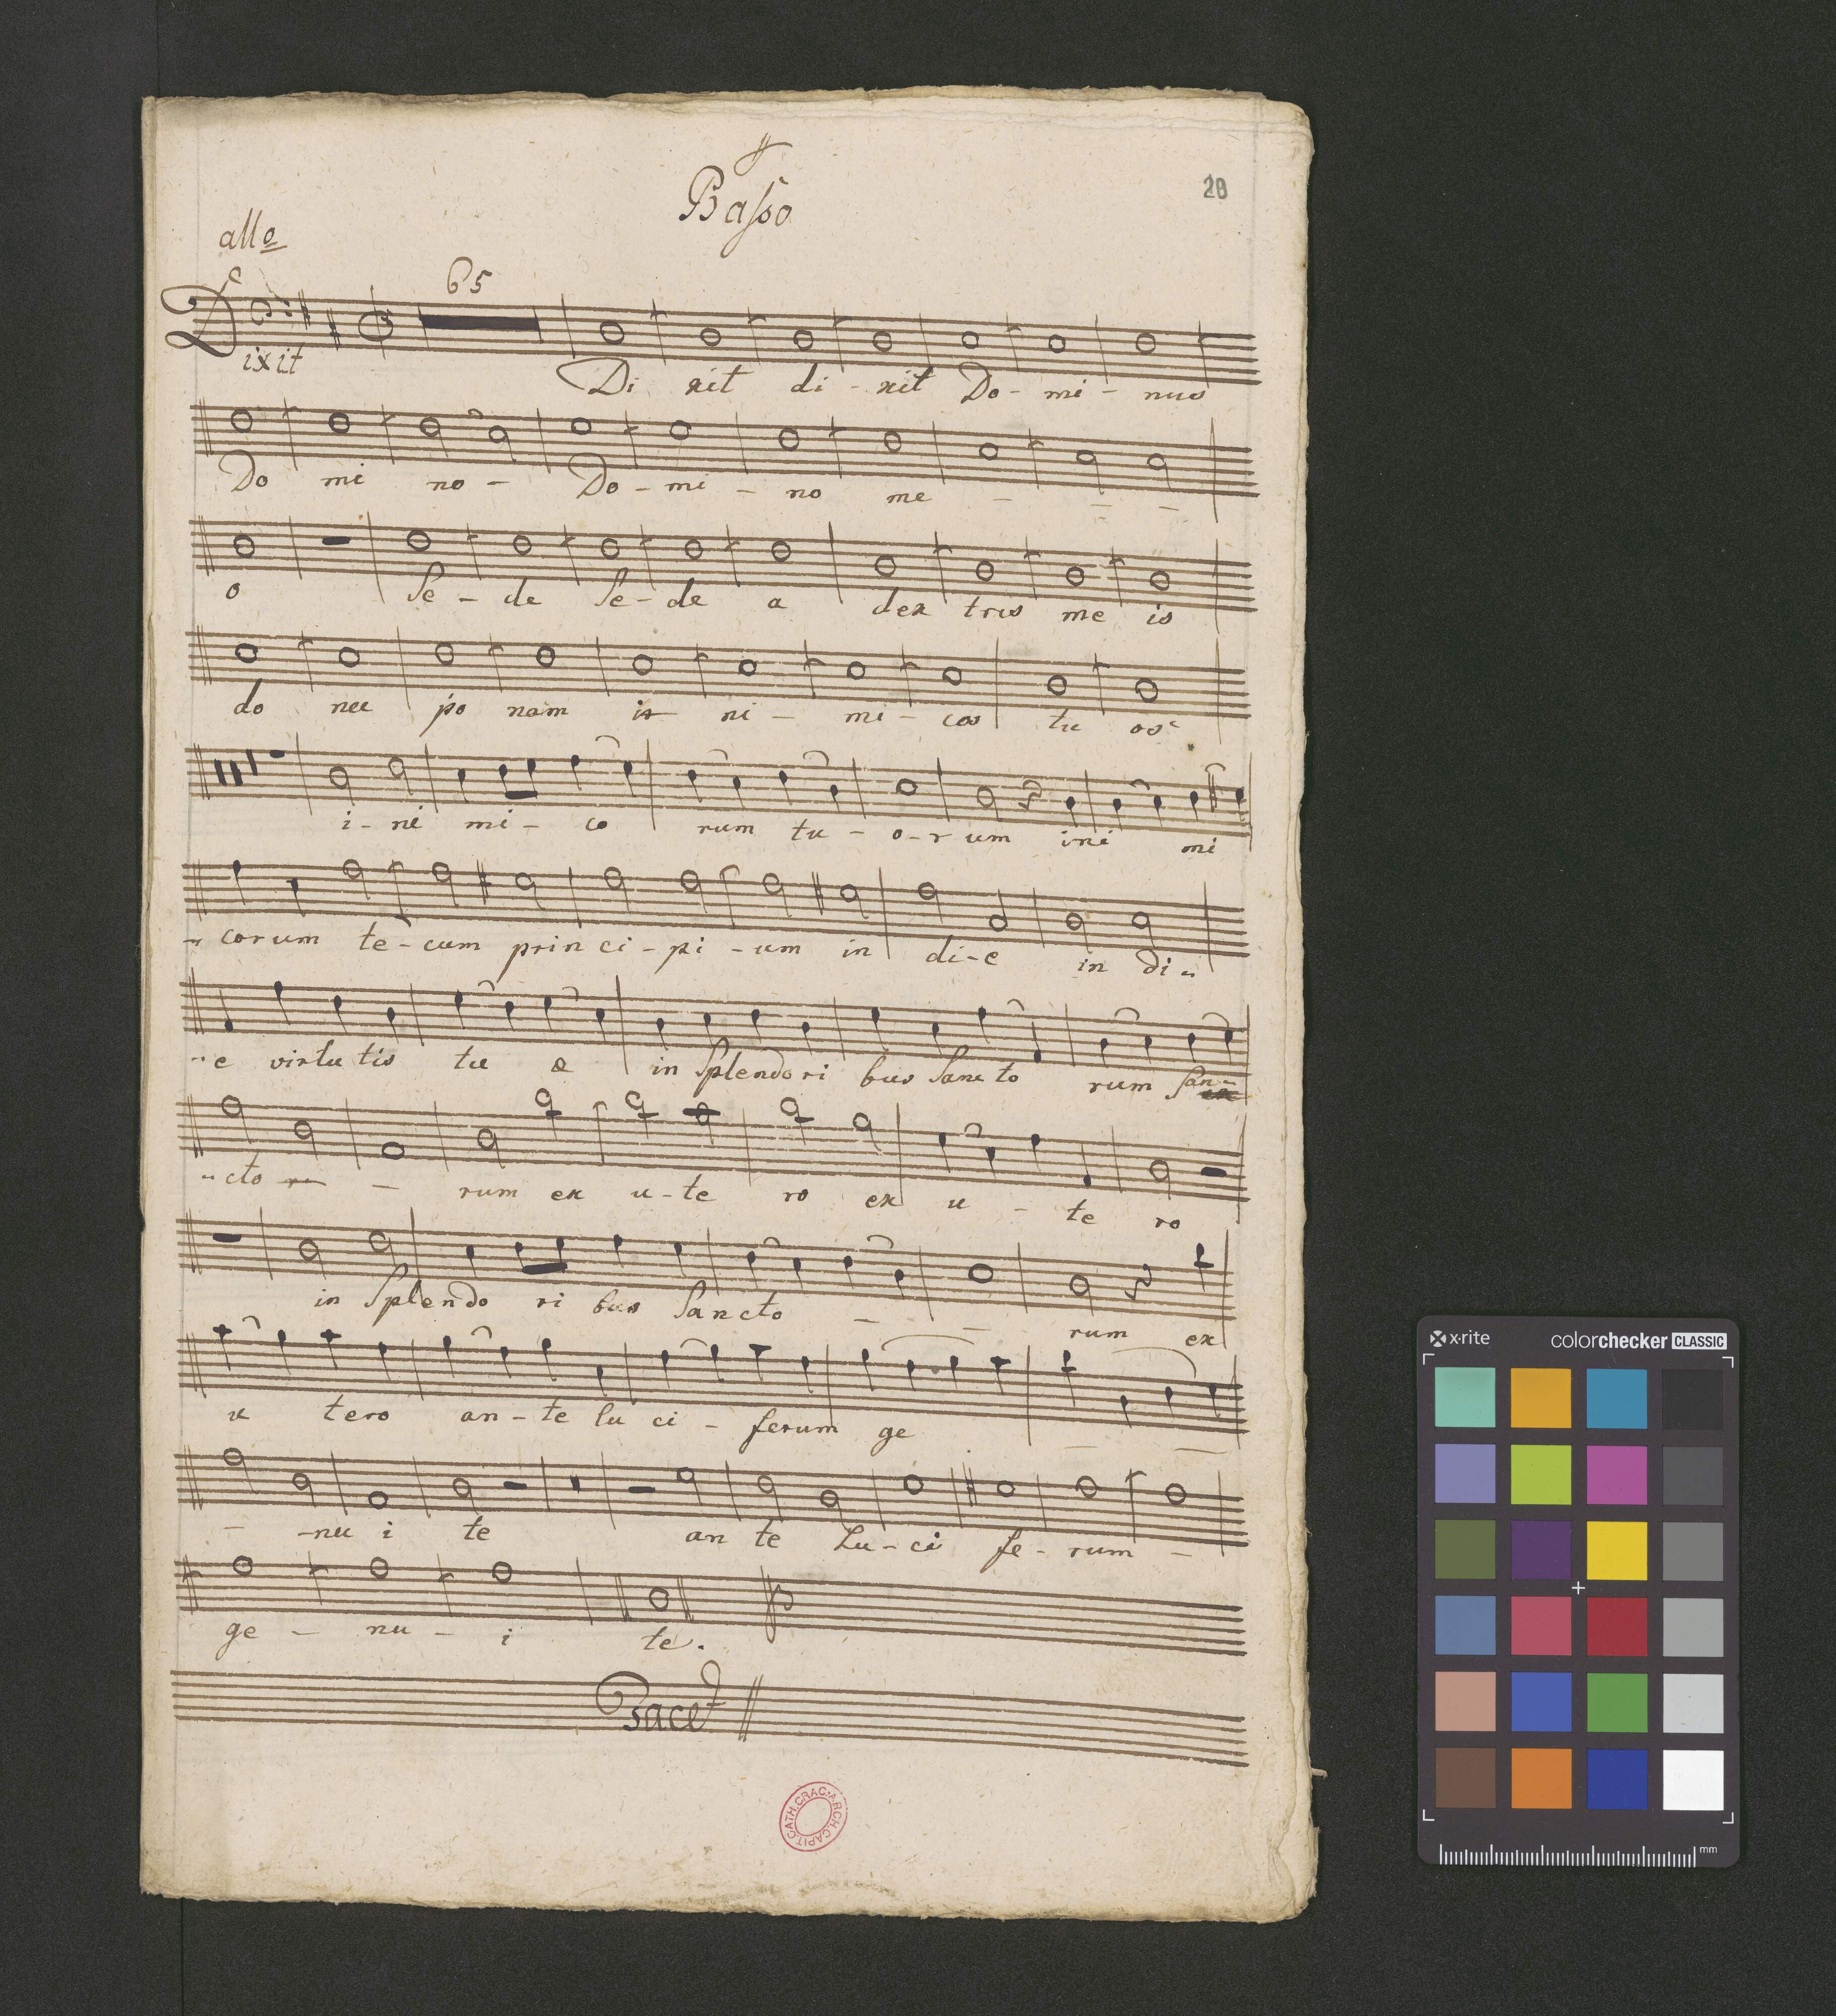 Basso
20
allo
65
Dixit
Di xit di - xit Do - mi - nus
Do mi no - Do - mi - no me - - -
o Se - de Se - de a dex tris me is
do nec po nam in ni - mi - cos tu os
i - ni mi - co rum tu - o - r um ini mi
- corum te - cum prin ci - pi - um in di - e in di -
- e virtu tis tu æ in Splendo ri bus Sanc to rum San -
- cto - rum ex u - te ro ex u - te ro
in Splendo ri bus Sancto - - rum ex
u tero an - te lu ci - ferum ge - -
- - nu i te an te Lu - ci fe - rum -
ge - nu - i te.
Tacet
CATH.CRAC.ARCH.CAPIT.
x-rite
colorchecker CLASSIC
mm